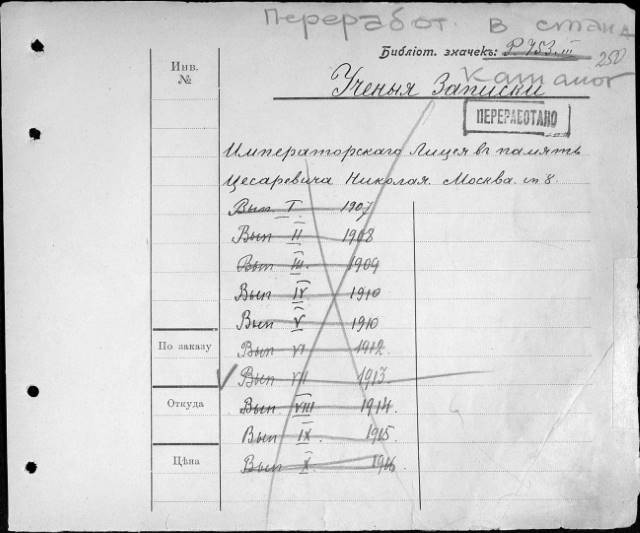 Переработ. в станд
Библіот. значекъ: Р 753 III
250
каталог
Ученыя Записки
ПЕРЕРАБОТАНО
Инв. №
Императорскаго Лицея въ память
Цесаревича Николая. Москва. in 8.
Вып. I 1907
Вып II 1908
Вып III. 1909
Вып IV 1910
Вып V 1910
По заказу
Вып VI 1912.
Вып VII 1913
Откуда
Вып VIII 1914.
Вып IX. 1915.
Цѣна
Вып X. 1916